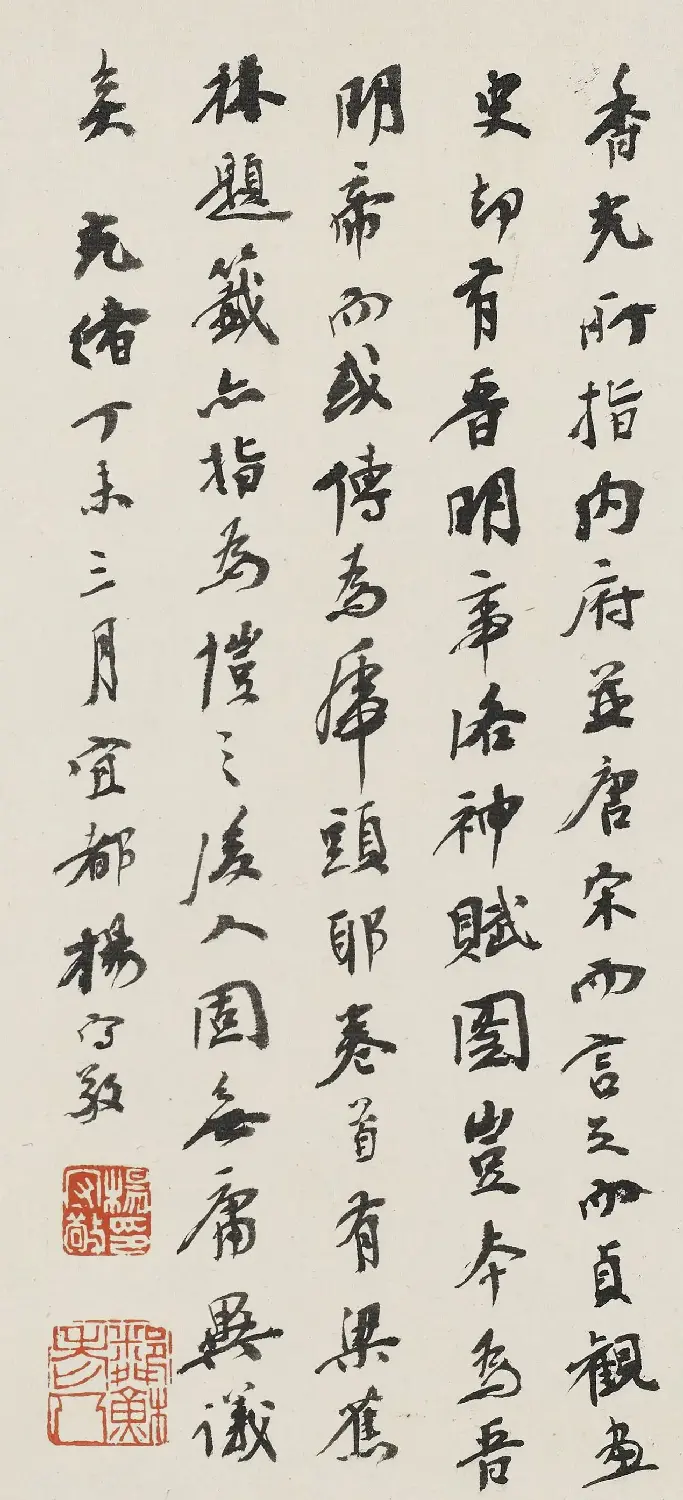 香光所指内府並唐宋而言之而貞觀畫
史却有晉明帝洛神賦圖豈本為晉
明帝而或傳為虎頭耶卷首有梁蕉
林題籤亦指為愷之後人固無庸異議
矣 光緒丁未三月宜都楊守敬
楊印守敬
鄰蘇老人